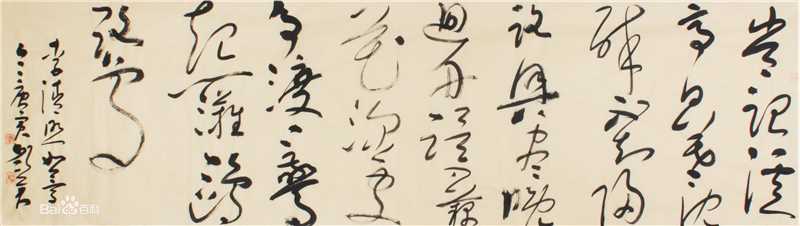 常記溪
亭日暮沈
醉不知歸
路興盡晚
迴舟誤入藕
花深處
爭渡〻驚
起一灘鷗
鷺
李清照如夢令
庚寅
Bai百科